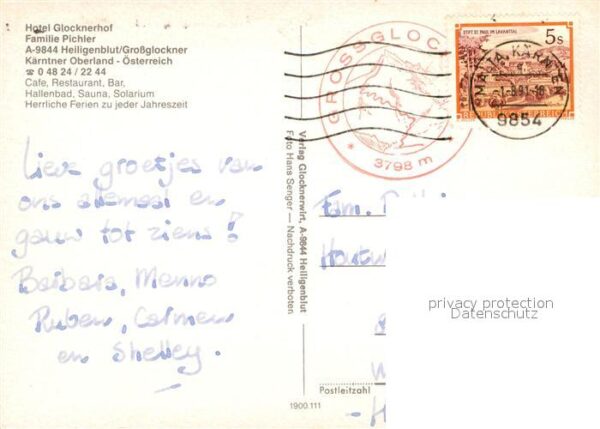 Hotel Glocknerhof
Familie Pichler
A-9844 Heiligenblut/Großglockner
Kärntner Oberland - Österreich
☎ 0 48 24 / 22 44
Cafe, Restaurant, Bar,
Hallenbad, Sauna, Solarium
Herrliche Ferien zu jeder Jahreszeit
Lieve groetjes van
ons allemaal en
gauw tot ziens!
Barbara, Menno
Ruben, Carmen
en Shelley.
Verlag Glocknerwirt, A-9844 Heiligenblut
Foto Hans Senger — Nachdruck verboten
GROSSGLOC
* 3798 m
STIFT ST. PAUL IM LAVANTTAL
5s
REPUBLIK ÖSTERREICH
MALTA, KÄRNTEN
9854
Fam.
Postleitzahl
1900.111
privacy protection
Datenschutz